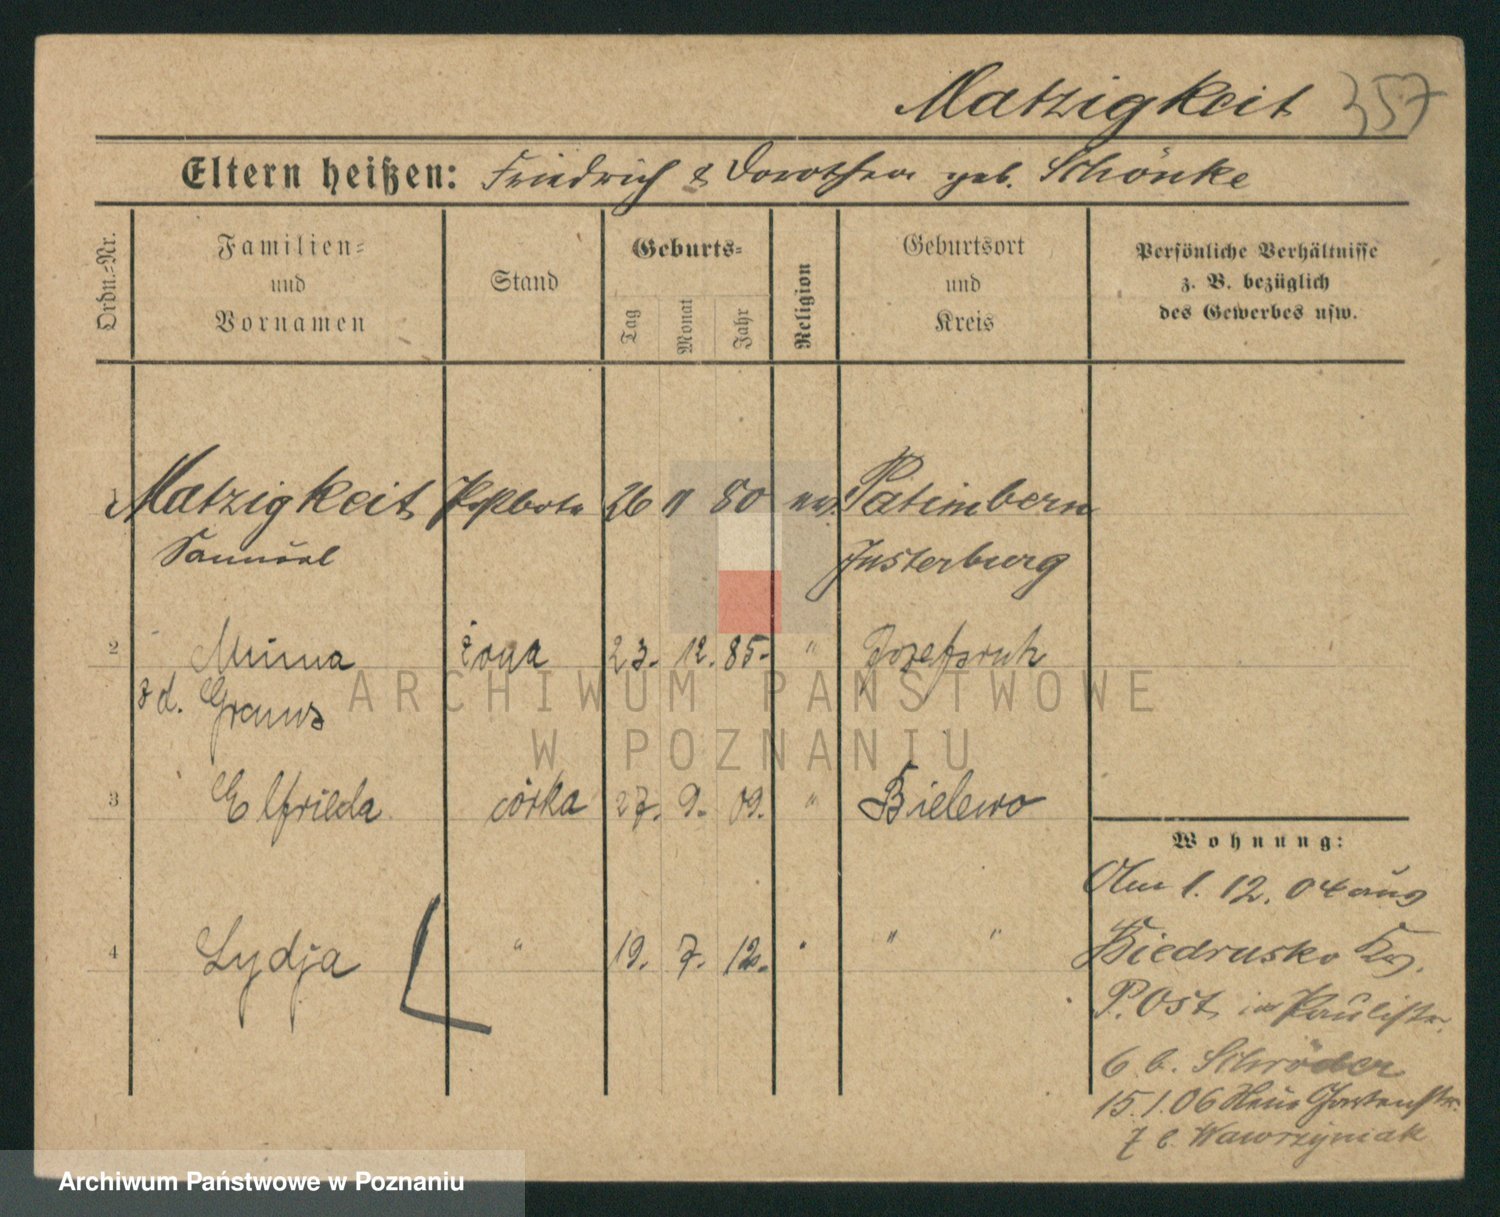 Matzigkeit 357
Eltern heißen: Friedrich & Dorothea geb. Schönke
Ordn.-Nr.
Familien-
und
Vornamen
Stand
Geburts-
Tag
Monat
Jahr
Religion
Geburtsort
und
Kreis
Persönliche Verhältnisse
z. B. bezüglich
des Gewerbes usw.
1 Matzigkeit Postbote 26 11 80 ev. Patimbern
Samuel Insterburg
2 Minna żona 23. 12. 85. "
z d.
3 Elfrieda córka 27. 9. 09. " Bielewo
4 Lydja " 19. 7. 12. " " "
Wohnung:
1. 12. 04 aus
Biedrusko Kr.
P. Ost in Paulistr.
6 b. Schröder
15.1.06 Gartenstr.
7 b. Wawrzyniak
ARCHIWUM PAŃSTWOWE
W POZNANIU
Archiwum Państwowe w Poznaniu